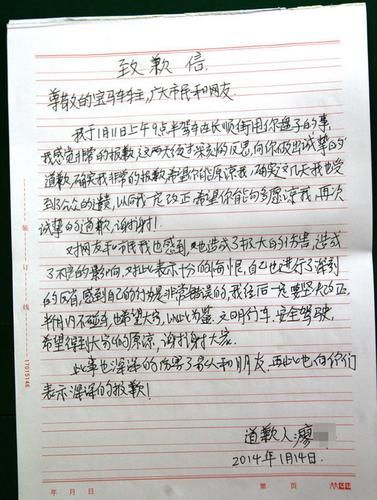 致歉信
尊敬的宝马车车主,广大市民和网友
我于1月11日上午9点半驾车在长顺街用你 的事,
我感到非常的抱歉,这两天经过深刻的反思,向你做出诚挚的
道歉,确实我非常的抱歉希望你能原谅我,确实这几天我也受
到了公众的谴责,以后我一定改正,希望你能够原谅我,再次
诚挚的道歉,谢谢!
对网友和市民我也感到 造成了 大的伤害,造成
了不良的影响,对此表示十分的悔恨,自己也进行了深刻
的反省,感到自己的行为是非常错误的,我往后一定要坚决改正,
半月内不碰车,也希望大家,以此为鉴,文明行车,安全驾驶,
希望得到大家的原谅,谢谢大家.
此事也深深的伤害了家人和朋友,在此也向你们
表示深深的抱歉!
道歉人:廖
2014年1月14日.
装订线
17015146
年 月 日 第 页